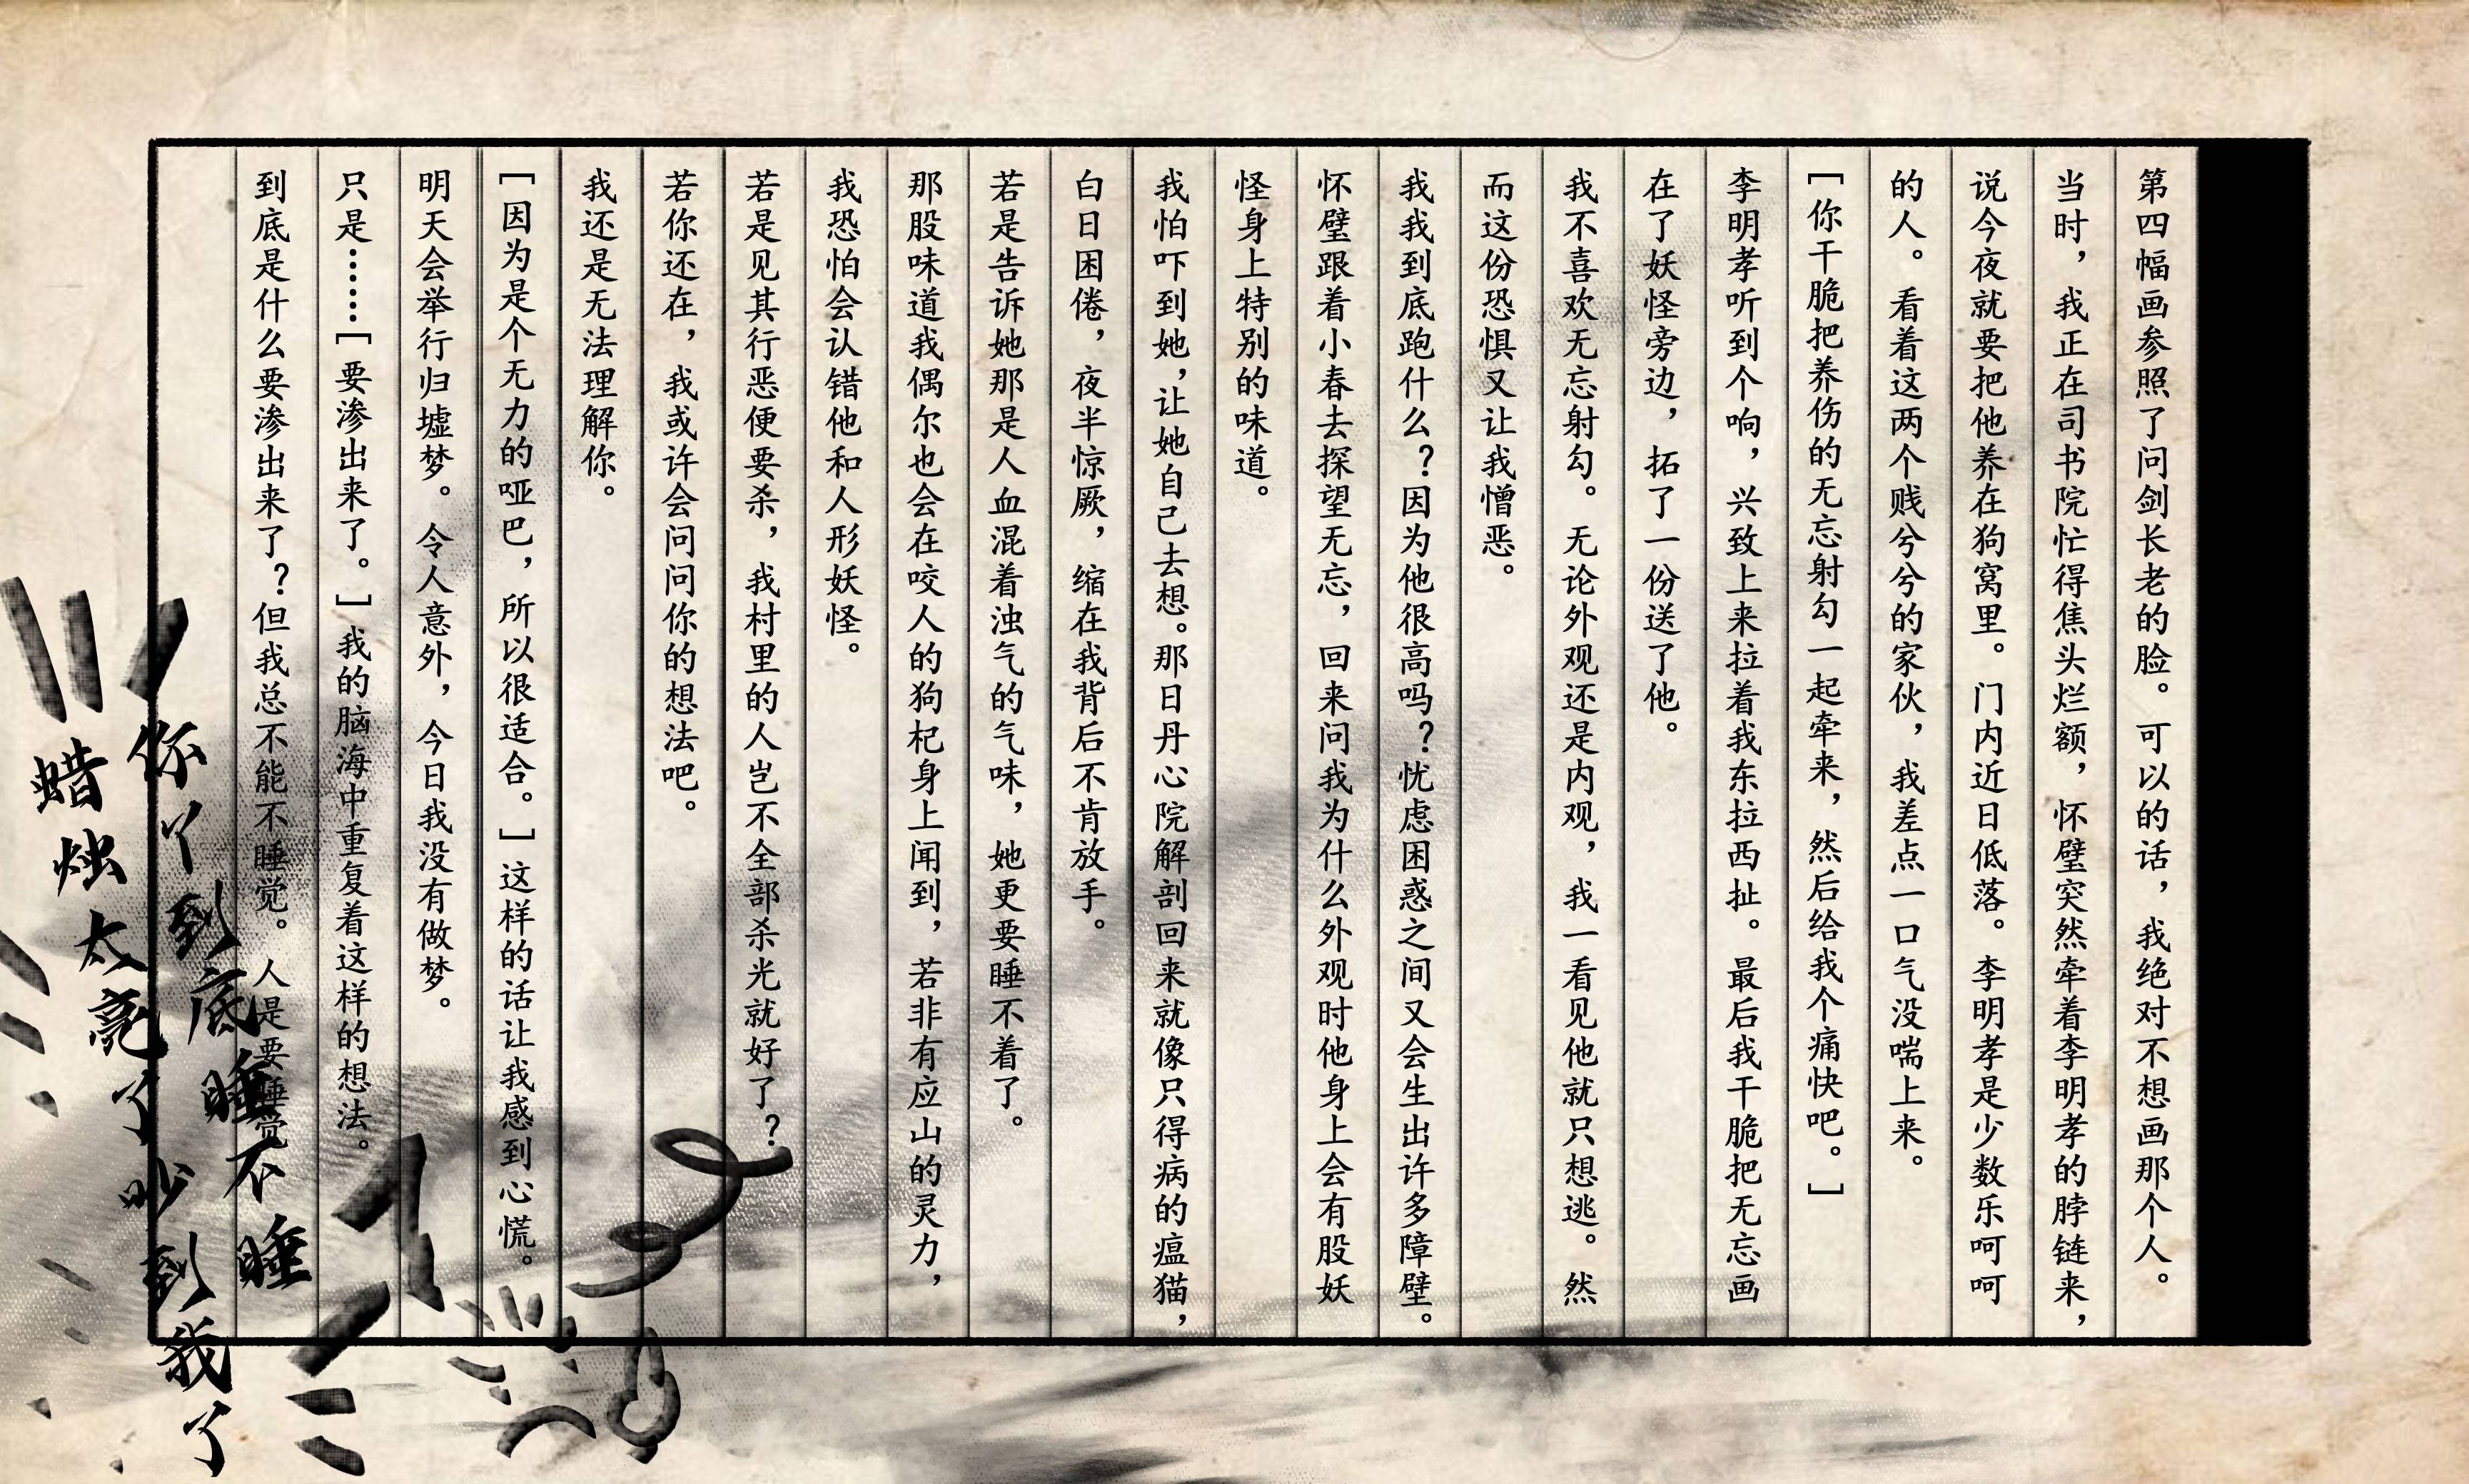 第四幅画参照了问剑长老的脸。可以的话，我绝对不想画那个人。
当时，我正在司书院忙得焦头烂额，怀璧突然牵着李明孝的脖链来，
说今夜就要把他养在狗窝里。门内近日低落。李明孝是少数乐呵呵
的人。看着这两个贱兮兮的家伙，我差点一口气没喘上来。
[你干脆把养伤的无忘射勾一起牵来，然后给我个痛快吧。]
李明孝听到个响，兴致上来拉着我东拉西扯。最后我干脆把无忘画
在了妖怪旁边，拓了一份送了他。
我不喜欢无忘射勾。无论外观还是内观，我一看见他就只想逃。然
而这份恐惧又让我憎恶。
我我到底跑什么？因为他很高吗？忧虑困惑之间又会生出许多障壁。
怀璧跟着小春去探望无忘，回来问我为什么外观时他身上会有股妖
怪身上特别的味道。
我怕吓到她，让她自己去想。那日丹心院解剖回来就像只得病的瘟猫，
白日困倦，夜半惊厥，缩在我背后不肯放手。
若是告诉她那是人血混着浊气的气味，她更要睡不着了。
那股味道我偶尔也会在咬人的狗杞身上闻到，若非有应山的灵力，
我恐怕会认错他和人形妖怪。
若是见其行恶便要杀，我村里的人岂不全部杀光就好了？
若你还在，我或许会问问你的想法吧。
我还是无法理解你。
[因为是个无力的哑巴，所以很适合。]这样的话让我感到心慌。
明天会举行归墟梦。令人意外，今日我没有做梦。
只是……[要渗出来了。]我的脑海中重复着这样的想法。
到底是什么要渗出来了？但我总不能不睡觉。人是要睡觉
你丫到底睡不睡
蜡烛太亮了吵到我了